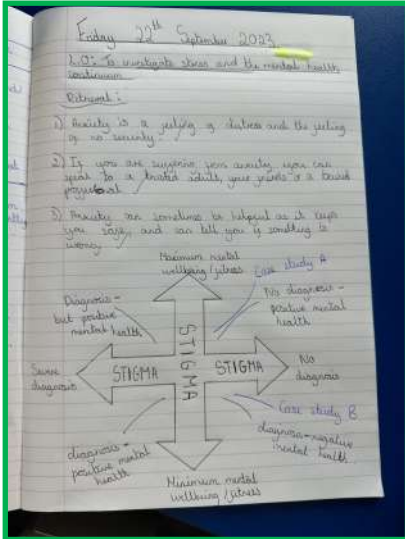 Friday 22th September 2023
L.O: To investigate stress and the mental health
continuum
Retrieval:
1) Anxiety is a feeling of distress and the feeling
of no security.
2) If you are suffering from anxiety you can
speak to a trusted adult, your friends or a
3) Anxiety can sometimes be helpful as it keeps
you safe, and can tell you if something is
wrong
Maximum mental
wellbeing/fitness
Case study A
Diagnosis -
but positive
mental health
No diagnosis -
positive mental
health
STIGMA
Severe
diagnosis
STIGMA
STIGMA
No
diagnosis
Case study B
diagnosis -
positive mental
health
diagnosis - negative
mental health
Minimum mental
wellbeing/fitness